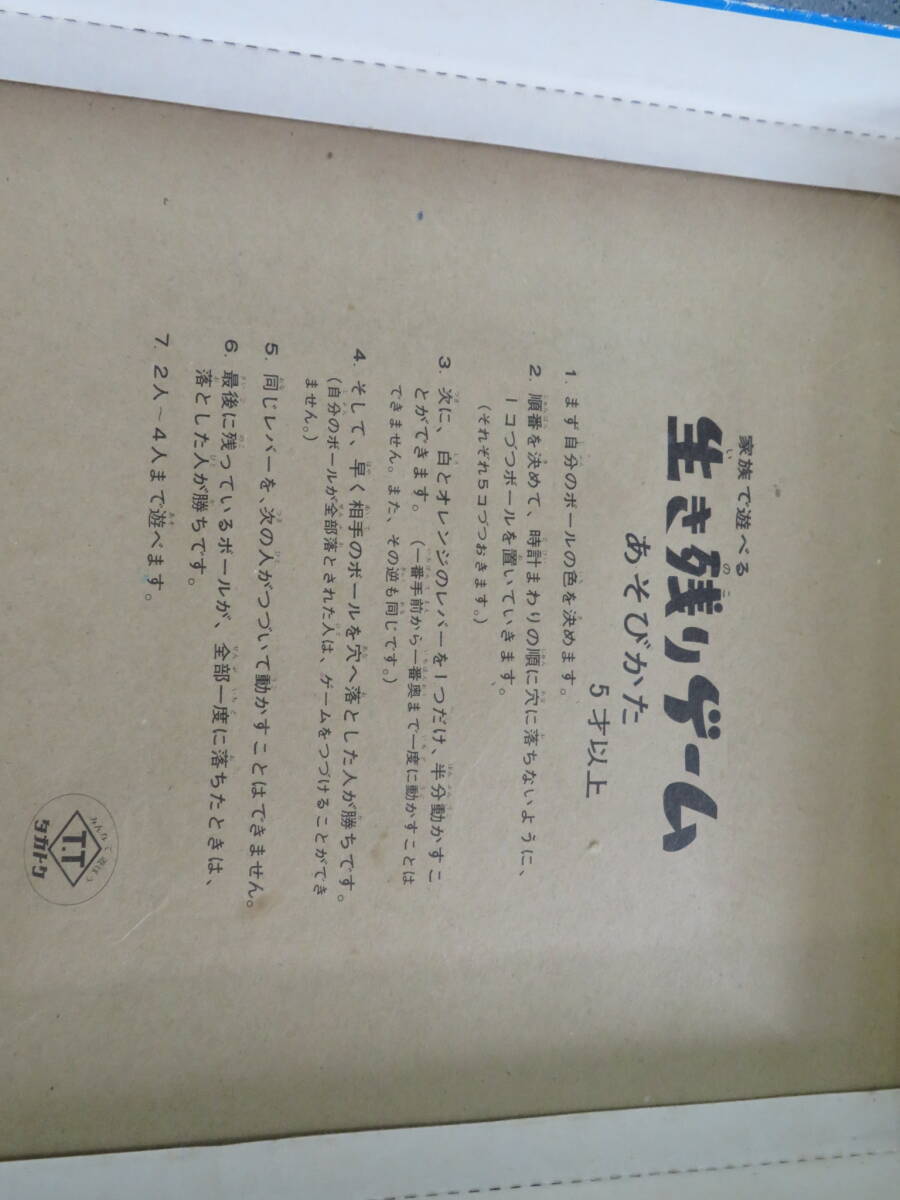 家族で遊べる
生き残りゲーム
あそびかた
5才以上
1. まず自分のボールの色を決めます。
2. 順番を決めて、時計まわりの順に穴に落ちないように、
1コづつボールを置いていきます。
(それぞれ5コづつおきます。)
3. 次に、白とオレンジのレバーを1つだけ、半分動かすこ
とができます。(一番手前から一番奥まで一度に動かすことは
できません。また、その逆も同じです。)
4. そして、早く相手のボールを穴へ落とした人が勝ちです。
(自分のボールが全部落とされた人は、ゲームをつづけることができ
ません。)
5. 同じレバーを、次の人がつづいて動かすことはできません。
6. 最後に残っているボールが、全部一度に落ちたときは、
落とした人が勝ちです。
7. 2人~4人まで遊べます。
T.T
タカトク